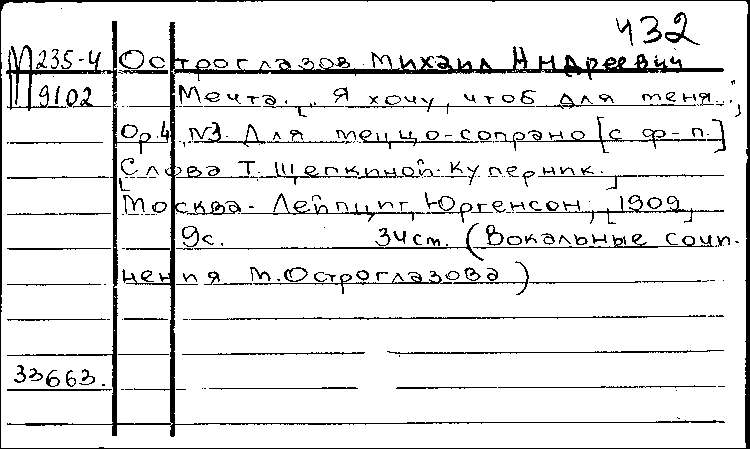 432
М 235-4 Остроглазов, Михаил Андреевич
9102 Мечта. [„Я хочу, чтоб для меня...",
Op.4, N3. Для меццо-сопрано [с ф-п.]
[Слова Т. Щепкиной-Куперник.]
Москва-Лейпциг, Юргенсон, [1909]
9с. 34см. (Вокальные сочи-
нения М. Остроглазова)
33663.